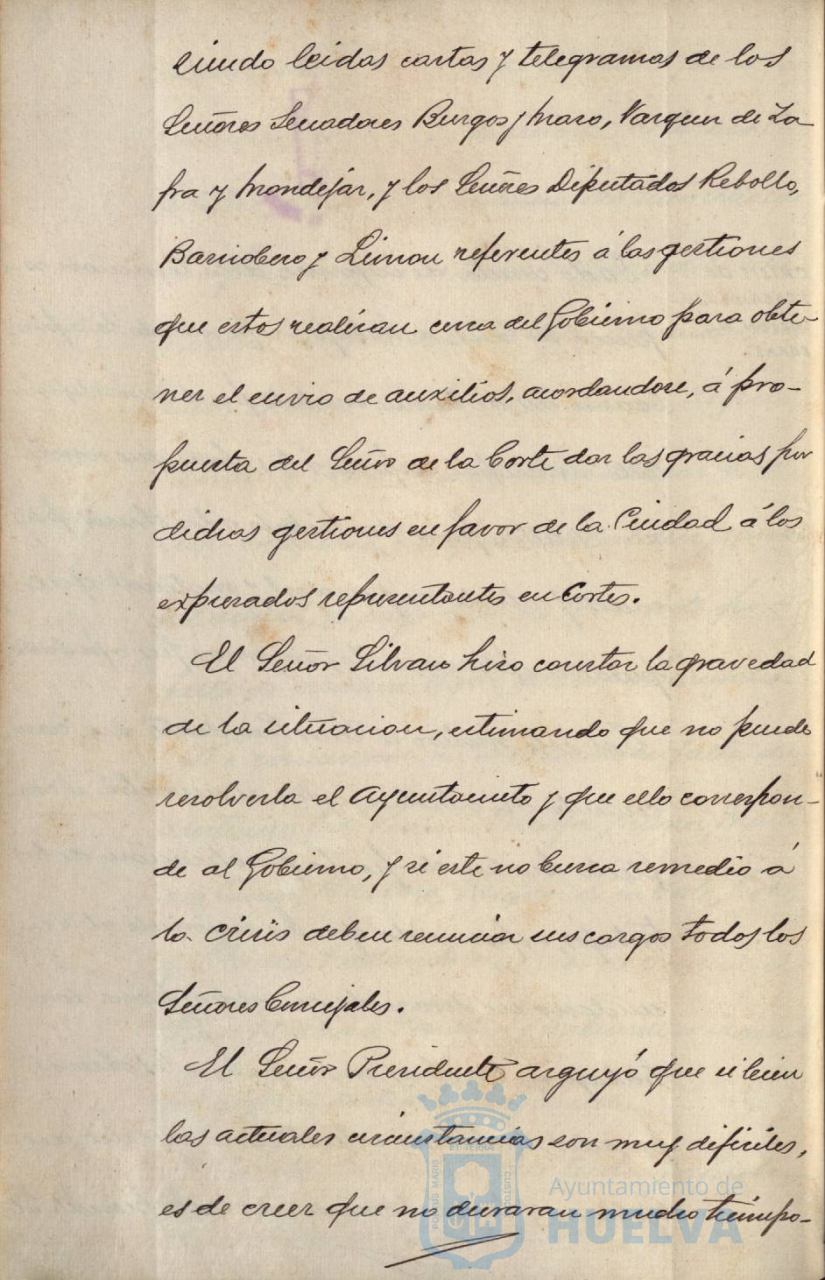 siendo leidas cartas y telegramas de los
Señores Senadores Burgos y Mazo, Marques de Za-
fra y Mondejár, y los Señores Diputados Rebollo,
Barriobero y Limon referentes á las gestiones
que estos realizan cerca del Gobierno para obte-
ner el envio de auxilios, acordandose, á pro-
puesta del Señor de la Corte dar las gracias por
dichas gestiones en favor de la Ciudad á los
expresados representantes en Cortes.
El Señor Silvan hizo constar la gravedad
de la situacion, estimando que no puede
resolverla el Ayuntamiento y que ello correspon-
de al Gobierno, y si este no busca remedio á
la crisis deben renunciar sus cargos todos los
Señores Concejales.
El Señor Presidente arguyó que si bien
las actuales circunstancias son muy dificiles,
es de creer que no duraran mucho tiempo-
Ayuntamiento de
HUELVA